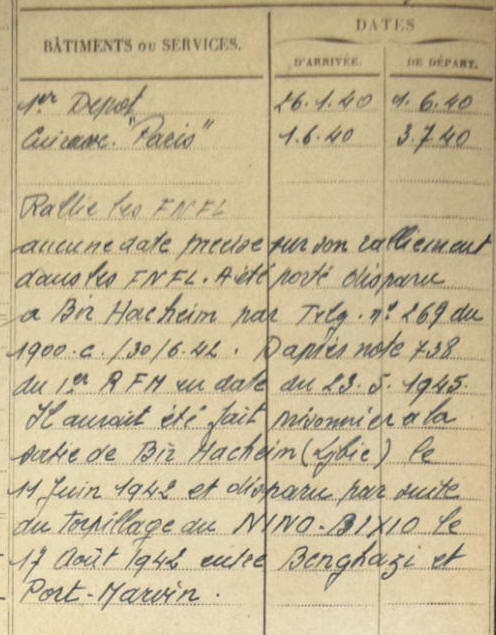 BÂTIMENTS OU SERVICES.
DATES
D'ARRIVÉE.
DE DÉPART.
1er Depot 26.1.40 1.6.40
Cuirassé. "Paris" 1.6.40 3.7.40
Rallie les FNFL
aucune date precise sur son ralliement
dans les FNFL. A été porté disparu
a Bir Hacheim par Telg. n° 269 du
1900.c./30/6.42. Daprès note 738
du 1er RFM en date du 23.5.1945.
Il aurait été fait prisonnier a la
sortie de Bir Hacheim (Lybie) le
11 Juin 1942 et disparu par suite
du torpillage du NINO-BIXIO le
17 Août 1942 entre Benghazi et
Port-Marvin.